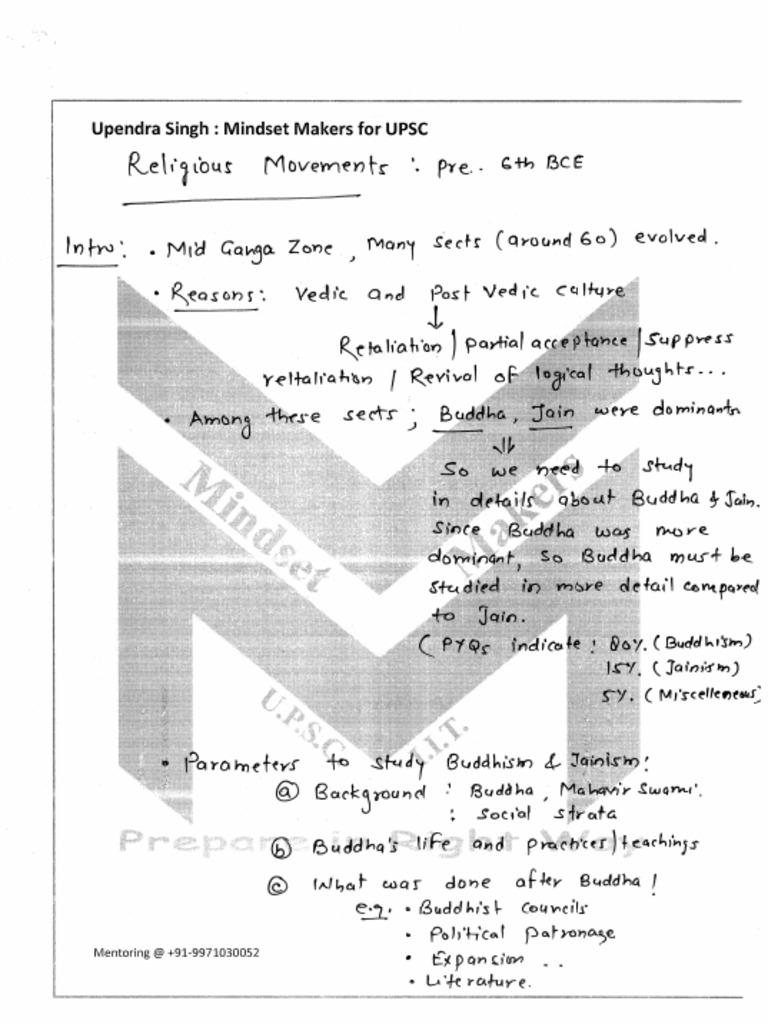 Upendra Singh : Mindset Makers for UPSC
Religious Movements : Pre.. 6th BCE
Intro: • Mid Ganga Zone, Many sects (around 60) evolved.
• Reasons: Vedic and Post Vedic culture
↓
Retaliation / Partial acceptance / Suppress
reltaliation / Revival of logical thoughts...
• Among these sects ; Buddha, Jain were dominants
⇓
So we need to study
in details about Buddha & Jain.
Since Buddha was more
dominant, so Buddha must be
studied in more detail compared
to Jain.
( PYQs indicate : 80%. (Buddhism)
15%. (Jainism)
5%. (Miscelleneous)
• Parameters to study Buddhism & Jainism:
(a) Background : Buddha, Mahavir Swami.
: Social strata
(b) Buddha's life and practices/teachings
(c) What was done after Buddha!
e.g. • Buddhist Councils
• Political Patronage
• Expansion ..
• Literature.
Mindset Makers
U.P.S.C I.I.T.
Prepare in Right Way
Mentoring @ +91-9971030052